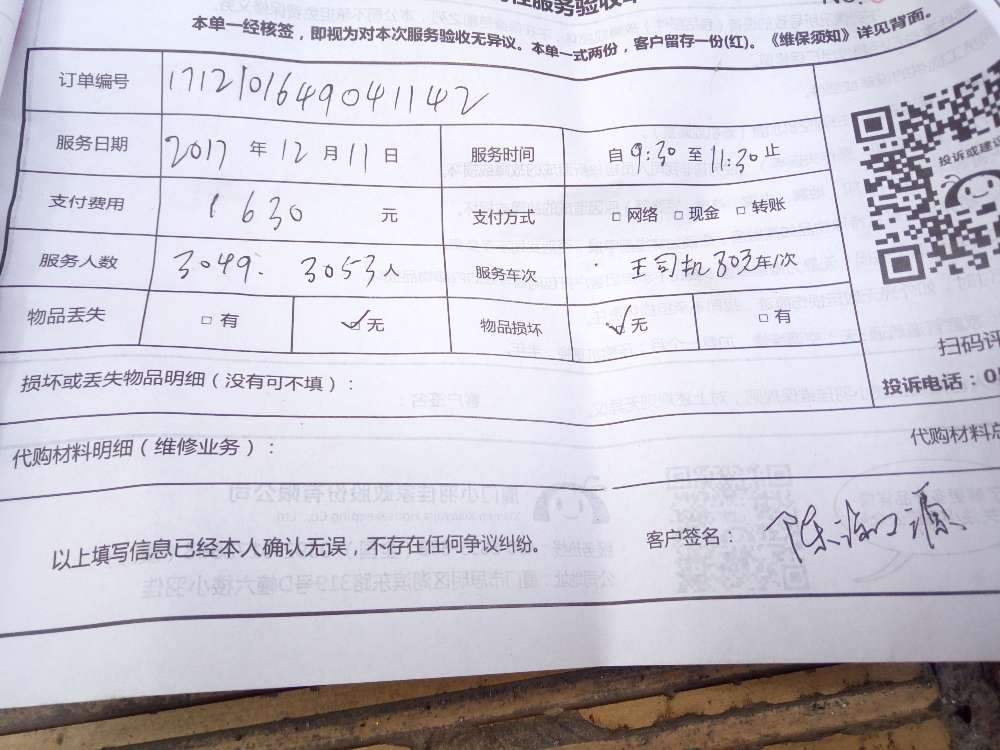 性服务验收单
No.
本单一经核签，即视为对本次服务验收无异议。本单一式两份，客户留存一份(红)。《维保须知》详见背面。
订单编号 1712101649041142
服务日期 2017 年 12 月 11 日 服务时间 自 9:30 至 11:30 止
支付费用 1630 元 支付方式 □ 网络 □ 现金 □ 转账
服务人数 3049. 3053 人 服务车次 王司机 303 车/次
物品丢失 □ 有 ☑ 无 物品损坏 ☑ 无 □ 有
损坏或丢失物品明细（没有可不填）：
代购材料明细（维修业务）：
代购材料总
投诉或建议
扫码评
投诉电话：05
以上填写信息已经本人确认无误，不存在任何争议纠纷。
客户签名：陈海源